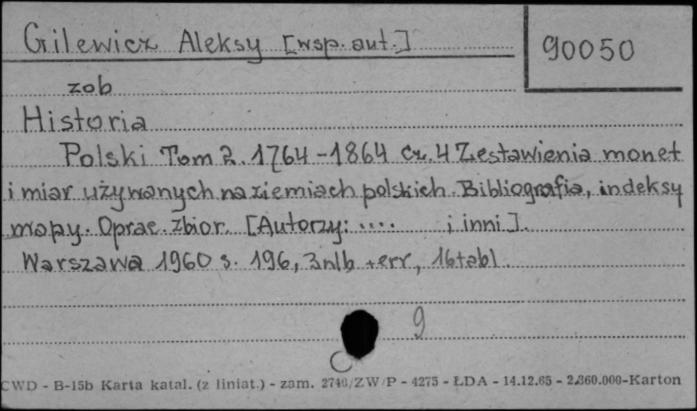 Gilewicz Aleksy [wsp. aut.]
90050
zob
Historia
Polski Tom 2. 1764-1864 Cz. 4 Zestawienia monet
i miar używanych na ziemiach polskich. Bibliografia, indeksy
mapy. Oprac. zbior. [Autorzy: .... i inni].
Warszawa 1960 s. 196, 3nlb +err, 16tabl.
9
CWD - B-15b Karta katal. (z liniat.) - zam. 2740/ZW/P - 4275 - ŁDA - 14.12.65 - 2.360.000-Karton